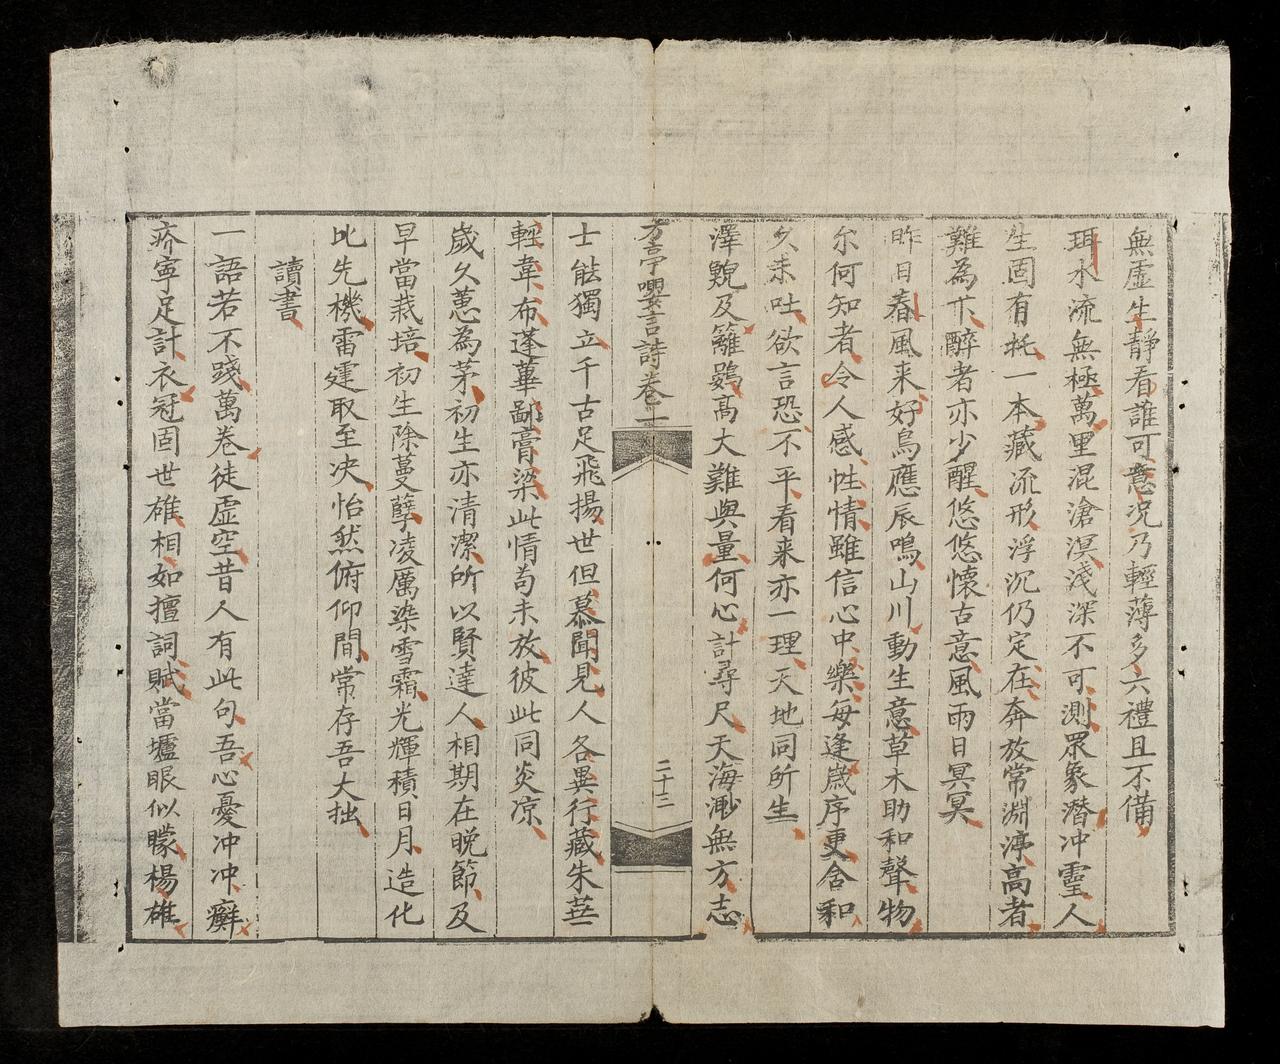 無虛生靜看誰可意况乃輕薄多六禮且不備
珥水流無極萬里混滄溟淺深不可測眾象潛冲靈人
生固有托一本藏流形浮沉仍定在奔放常淵渟高者
難為下醉者亦少醒悠悠懷古意風雨日冥冥
昨日春風来好鳥應辰鳴山川動生意草木助和聲物
尔何知者令人感性情雖信心中樂每逢歳序更含和
久未吐欲言恐不平看来亦一理天地同所生
澤䴊及籬鷃高大難與量何心計尋尺天海渺無方志
方亭嚶言詩卷一
二十三
士能獨立千古足飛揚世但慕聞見人各異行藏朱芾
輕韋布蓬蓽鄙膏梁此情苟未放彼此同炎凉
歲久蕙為茅初生亦清潔所以賢達人相期在晚節及
早當栽培初生除蔓孽凌厲染雪霜光輝積日月造化
比先機雷霆取至决怡然俯仰間常存吾大拙
讀書
一語若不踐萬卷徒虛空昔人有此句吾心憂冲冲癬
疥寧足計衣冠固世雄相如擅詞賦當壚眼似矇楊雄